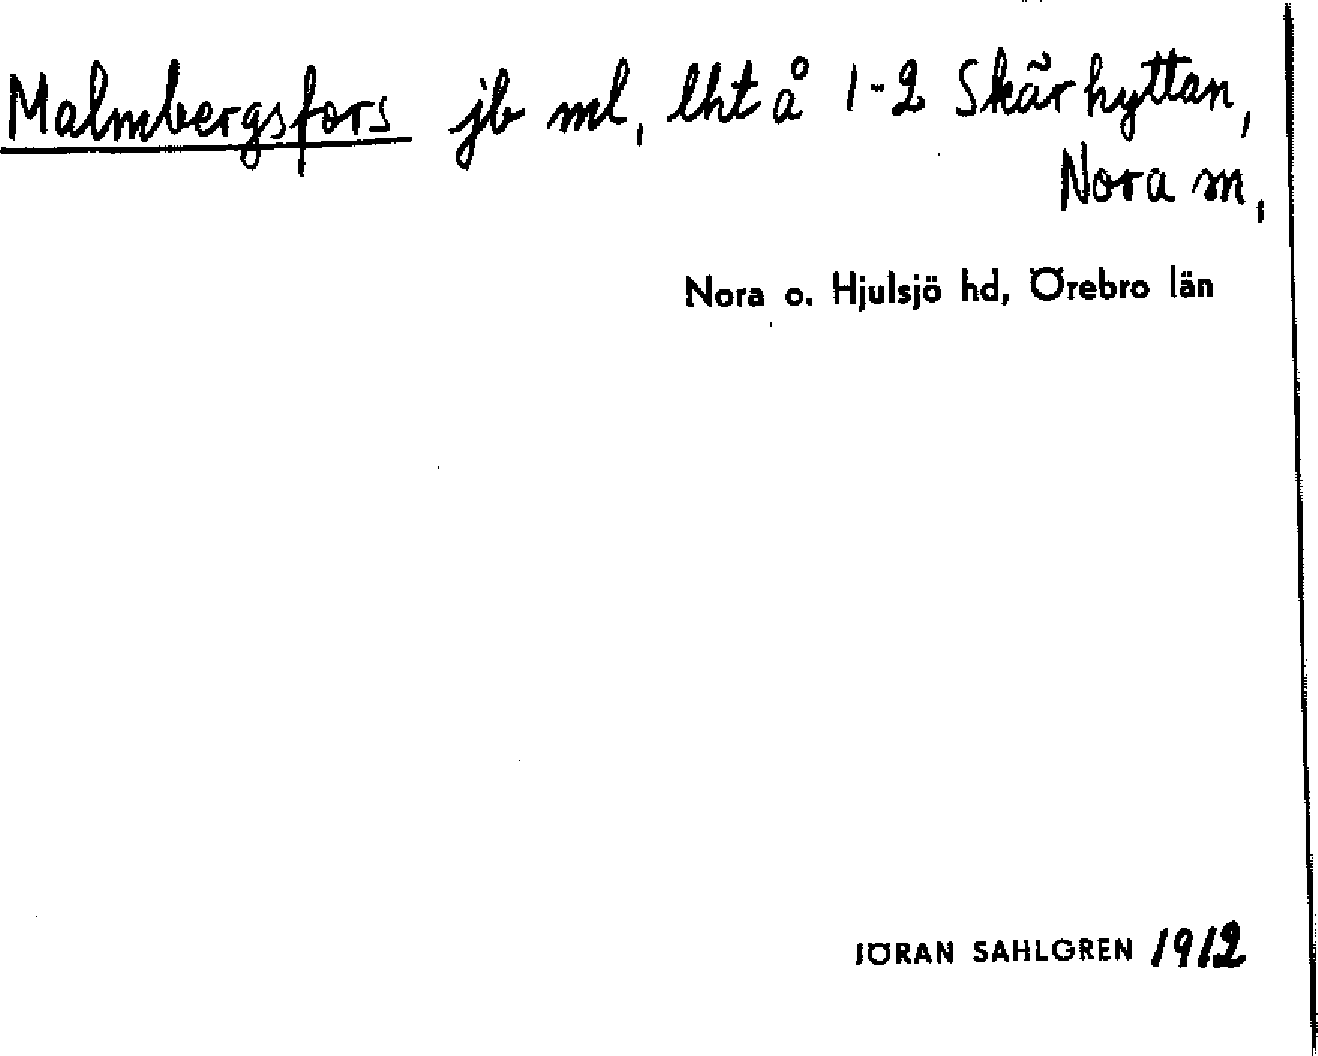 Malmbergsfors jb ml, lht å 1-2 Skärhyttan,
Nora m,
Nora o. Hjulsjö hd, Örebro län
JÖRAN SAHLGREN 1912